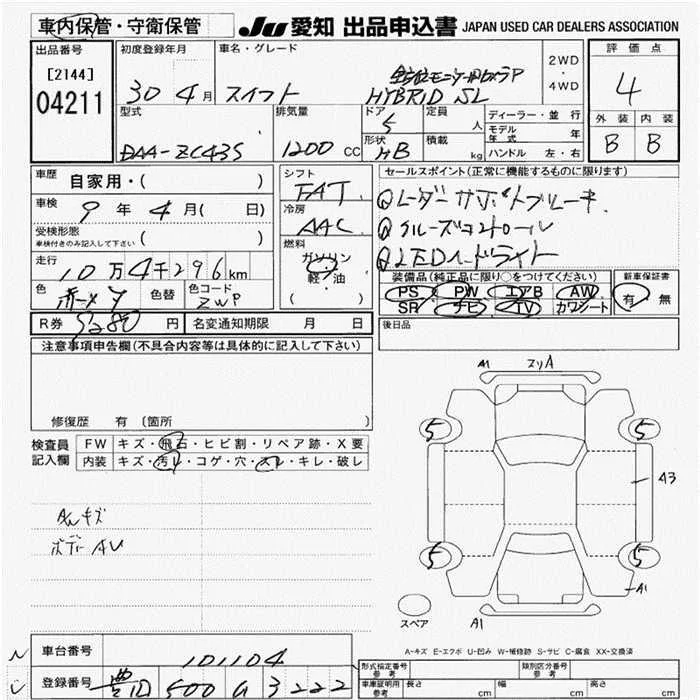 車内保管・守衛保管 JU 愛知 出品申込書 JAPAN USED CAR DEALERS ASSOCIATION
出品番号 初度登録年月 車名・グレード 2WD・4WD 評価点
[2144]
04211 30 4月 スイフト HYBRID SL 4
型式 排気量 ドア 5 定員 人 ディーラー・並行 外装 内装
DAA-ZC43S 1200 CC 形状 HB 積載 kg モデル年式 年 B B
ハンドル 左・右
車歴 自家用・( ) シフト FAT セールスポイント(正常に機能するものに限ります)
車検 9年 4月( 日) 冷房 AAC レーダーサポートブレーキ
受検形態 ( ) クルーズコントロール
車検付きのみ記入して下さい 燃料 ガソリン 軽油 ( ) LEDヘッドライト
走行 10万4千296km 装備品(純正品に限り○をつけてください) 新車保証書
色 赤-M 色替 色コード ZWP PS PW エアB AW 有・無
SR ナビ TV カワシート
R券 9280円 名変通知期限 月 日 後日品
注意事項申告欄(不具合内容等は具体的に記入して下さい)
修復歴 有 〔箇所 〕
A1 スリA
検査員記入欄 FW キズ・飛石・ヒビ割・リペア跡・X要
内装 キズ・汚れ・コゲ・穴・スレ・キレ・破レ
5 5
A3
AWキズ
ボディーAU
5 5
A1
スペア A1
A-キズ E-エクボ U-凹み W-補修跡 S-サビ C-腐食 XX-交換済
車台番号 101104 形式指定番号 参考 類別区分番号 参考
登録番号 豊田 500 3222 車庫証明用 参考 長さ cm 幅 cm 高さ cm